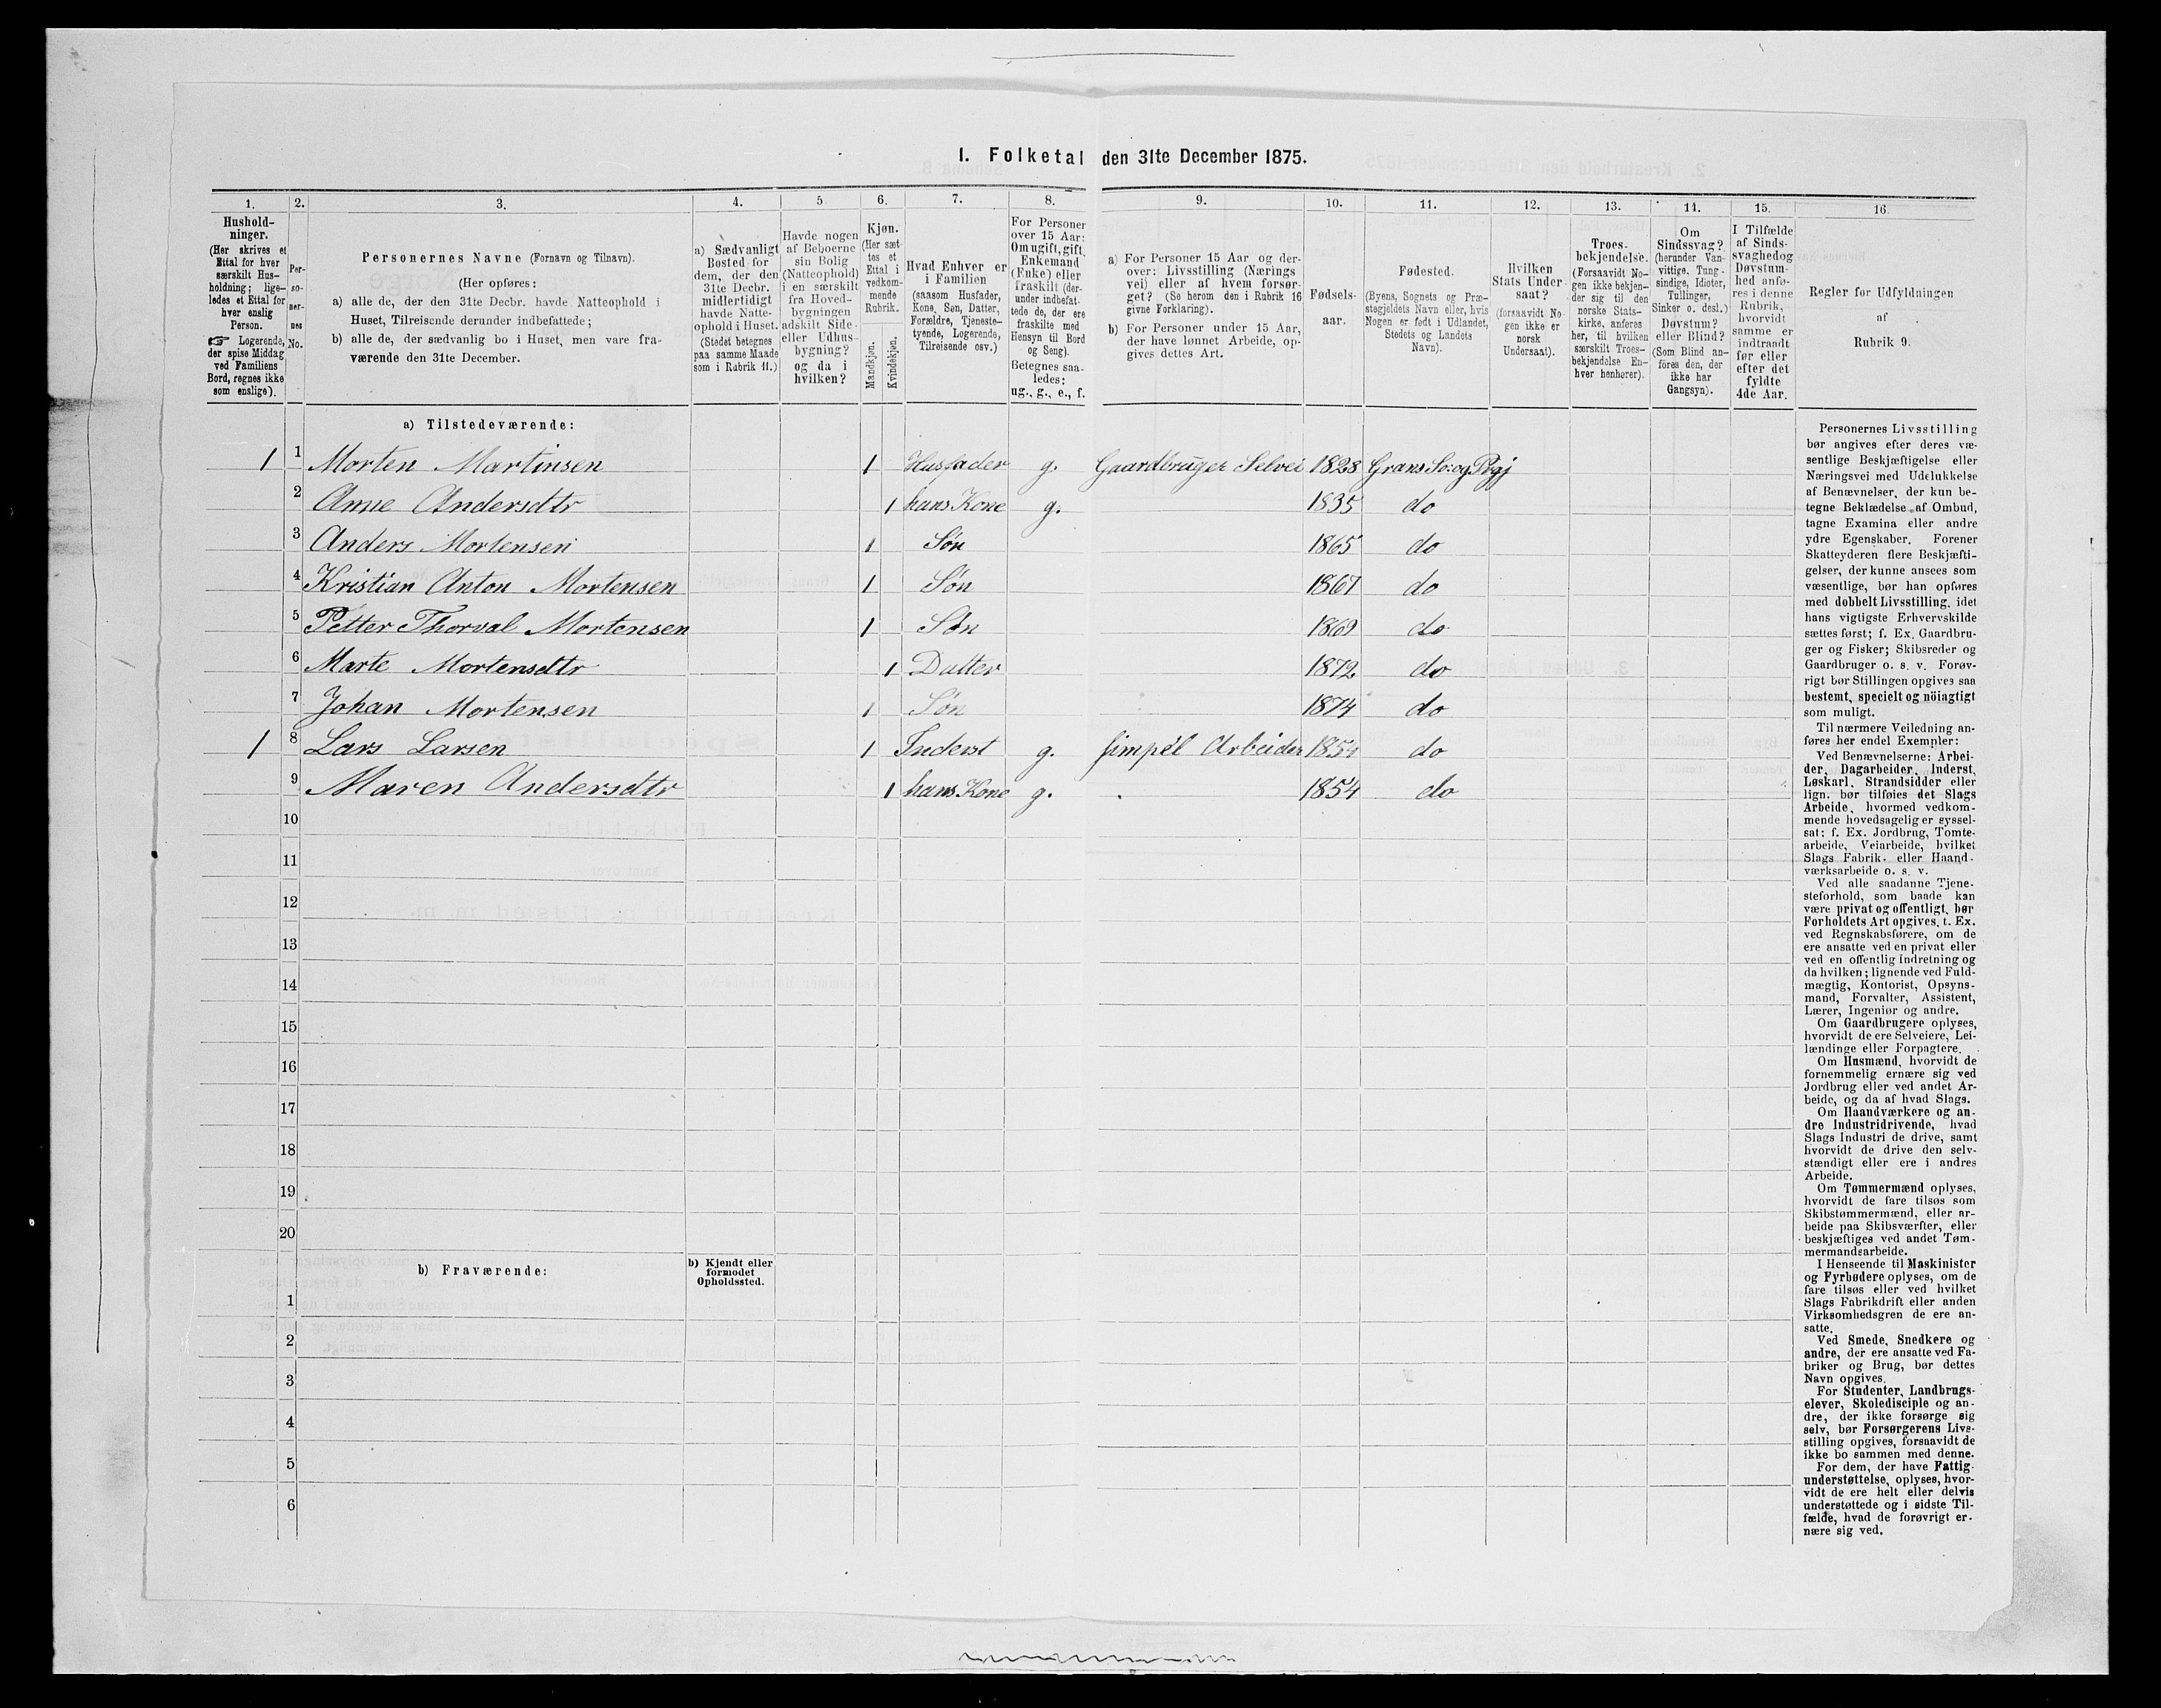 I. Folketal den 31te December 1875.
1.
Hushold-
ninger.
(Her skrives et
Ettal for hver
særskilt Hus-
holdning; lige-
ledes et Ettal for
hver enslig
Person.
☞ Logerende,
der spise Middag
ved Familiens
Bord, regnes ikke
som enslige).
2.
Per-
so-
ner-
nes
No.
3.
Personernes Navne (Fornavn og Tilnavn).
(Her opføres:
a) alle de, der den 31te Decbr. havde Natteophold i
Huset, Tilreisende derunder indbefattede;
b) alle de, der sædvanlig bo i Huset, men vare fra-
værende den 31te December.
4.
a) Sædvanligt
Bosted for
dem, der den
31te Decbr.
midlertidigt
havde Natte-
ophold i Huset.
(Stedet betegnes
paa samme Maade
som i Rubrik 11.)
5
Havde nogen
af Beboerne
sin Bolig
(Natteophold)
i en særskilt
fra Hoved-
bygningen
adskilt Side-
eller Udhus-
bygning?
og da i
hvilken?
6.
Kjøn.
(Her sæt-
tes et
Ettal i
vedkom-
mende
Rubrik.
Mandkjøn.
Kvindekjøn.
7.
Hvad Enhver er
i Familien
(saasom Husfader,
Kone, Søn, Datter,
Forældre, Tjeneste-
tyende, Logerende,
Tilreisende osv.)
8.
For Personer
over 15 Aar:
Om ugift, gift,
Enkemand
(Enke) eller
fraskilt (der-
under indbefat-
tede de, der ere
fraskilte med
Hensyn til Bord
og Seng).
Betegnes saa-
ledes:
ug., g., e., f.
9.
a) For Personer 15 Aar og der-
over: Livsstilling (Nærings
vei) eller af hvem forsør-
get? (Se herom den i Rubrik 16
givne Forklaring).
b) For Personer under 15 Aar,
der have lønnet Arbeide, op-
gives dettes Art.
10.
Fødsels-
aar.
11.
Fødested.
(Byens, Sognets og Præ-
stegjeldets Navn eller, hvis
Nogen er født i Udlandet,
Stedets og Landets
Navn).
12.
Hvilken
Stats Under
saat?
(forsaavidt No-
gen ikke er
norsk
Undersaat).
13.
Troes-
bekjendelse.
(Forsaavidt No-
gen ikke bekjen-
der sig til den
norske Stats-
kirke, anføres
her, til hvilken
særskilt Troes-
bekjendelse En-
hver henhører).
14.
Om
Sindssvag?
(herunder Van-
vittige, Tung-
sindige, Idioter,
Tullinger,
Sinker o. desl.)
Døvstum?
eller Blind?
(Som Blind an-
føres den, der
ikke har
Gangsyn).
15.
I Tilfælde
af Sinds-
svaghed og
Døvstum-
hed anfø-
res i denne
Rubrik,
hvorvidt
samme er
indtraadt
før eller
efter det
fyldte
4de Aar.
16.
Regler for Udfyldningen
af
Rubrik 9.
a) Tilstedeværende:
1 1 Morten Martinsen 1 Husfader g. Gaardbruger Selvei 1828 Grans So: og Prgj
2 Anne Andersdtr 1 hans Kone g. 1835 do
3 Anders Mortensen 1 Søn 1865 do
4 Kristian Anton Mortensen 1 Søn 1867 do
5 Petter Thorval Mortensen 1 Søn 1869 do
6 Marte Mortensdtr 1 Datter 1872 do
7 Johan Mortensen 1 Søn 1874 do
1 8 Lars Larsen 1 Inderst g. simpel Arbeider 1854 do
9 Maren Andersdtr 1 hans Kone g. 1854 do
10
11
12
13
14
15
16
17
18
19
20
b) Fraværende:
b) Kjendt eller
formodet
Opholdssted.
1
2
3
4
5
6
Personernes Livsstilling
bør angives efter deres væ-
sentlige Beskjæftigelse eller
Næringsvei med Udelukkelse
af Benævnelser, der kun be-
tegne Beklædelse af Ombud,
tagne Examina eller andre
ydre Egenskaber. Forener
Skatteyderen flere Beskjæfti-
gelser, der kunne ansees som
væsentlige, bør han opføres
med dobbelt Livsstilling, idet
hans vigtigste Erhvervskilde
sættes først; f. Ex. Gaardbru-
ger og Fisker; Skibsreder og
Gaardbruger o. s. v. Forøv-
rigt bør Stillingen opgives saa
bestemt, specielt og nöiagtigt
som muligt.
Til nærmere Veiledning an-
føres her endel Exempler:
Ved Benævnelserne: Arbei-
der, Dagarbeider, Inderst,
Løskarl, Strandsidder eller
lign. bør tilføies det Slags
Arbeide, hvormed vedkom-
mende hovedsagelig er syssel-
sat; f. Ex. Jordbrug, Tomte-
arbeide, Veiarbeide, hvilket
Slags Fabrik- eller Haand-
værksarbeide o. s. v.
Ved alle saadanne Tjene-
steforhold, som baade kan
være privat og offentligt, bør
Forholdets Art opgives, t. Ex.
ved Regnskabsførere, om de
ere ansatte ved en privat eller
ved en offentlig Indretning og
da hvilken; lignende ved Fuld-
mægtig, Kontorist, Opsyns-
mand, Forvalter, Assistent,
Lærer, Ingeniør og andre.
Om Gaardbrugere oplyses,
hvorvidt de ere Selveiere, Lei-
lændinge eller Forpagtere.
Om Husmænd, hvorvidt de
fornemmelig ernære sig ved
Jordbrug eller ved andet Ar-
beide, og da af hvad Slags.
Om Haandværkere og an-
dre Industridrivende, hvad
Slags Industri de drive, samt
hvorvidt de drive den selv-
stændigt eller ere i andres
Arbeide.
Om Tømmermænd oplyses,
hvorvidt de fare tilsøs som
Skibstømmermænd, eller ar-
beide paa Skibsværfter, eller
beskjæftiges ved andet Tøm-
mermandsarbeide.
I Henseende til Maskinister
og Fyrbødere oplyses, om de
fare tilsøs eller ved hvilket
Slags Fabrikdrift eller anden
Virksomhedsgren de ere an-
satte.
Ved Smede, Snedkere og
andre, der ere ansatte ved Fa-
briker og Brug, bør dettes
Navn opgives.
For Studenter, Landbrugs-
elever, Skoledisciple og an-
dre, der ikke forsørge sig
selv, bør Forsørgerens Livs-
stilling opgives, forsaavidt de
ikke bo sammen med denne.
For dem, der have Fattig-
understøttelse, oplyses, hvor-
vidt de ere helt eller delvis
understøttede og i sidste Til-
fælde, hvad de forøvrigt er-
nære sig ved.